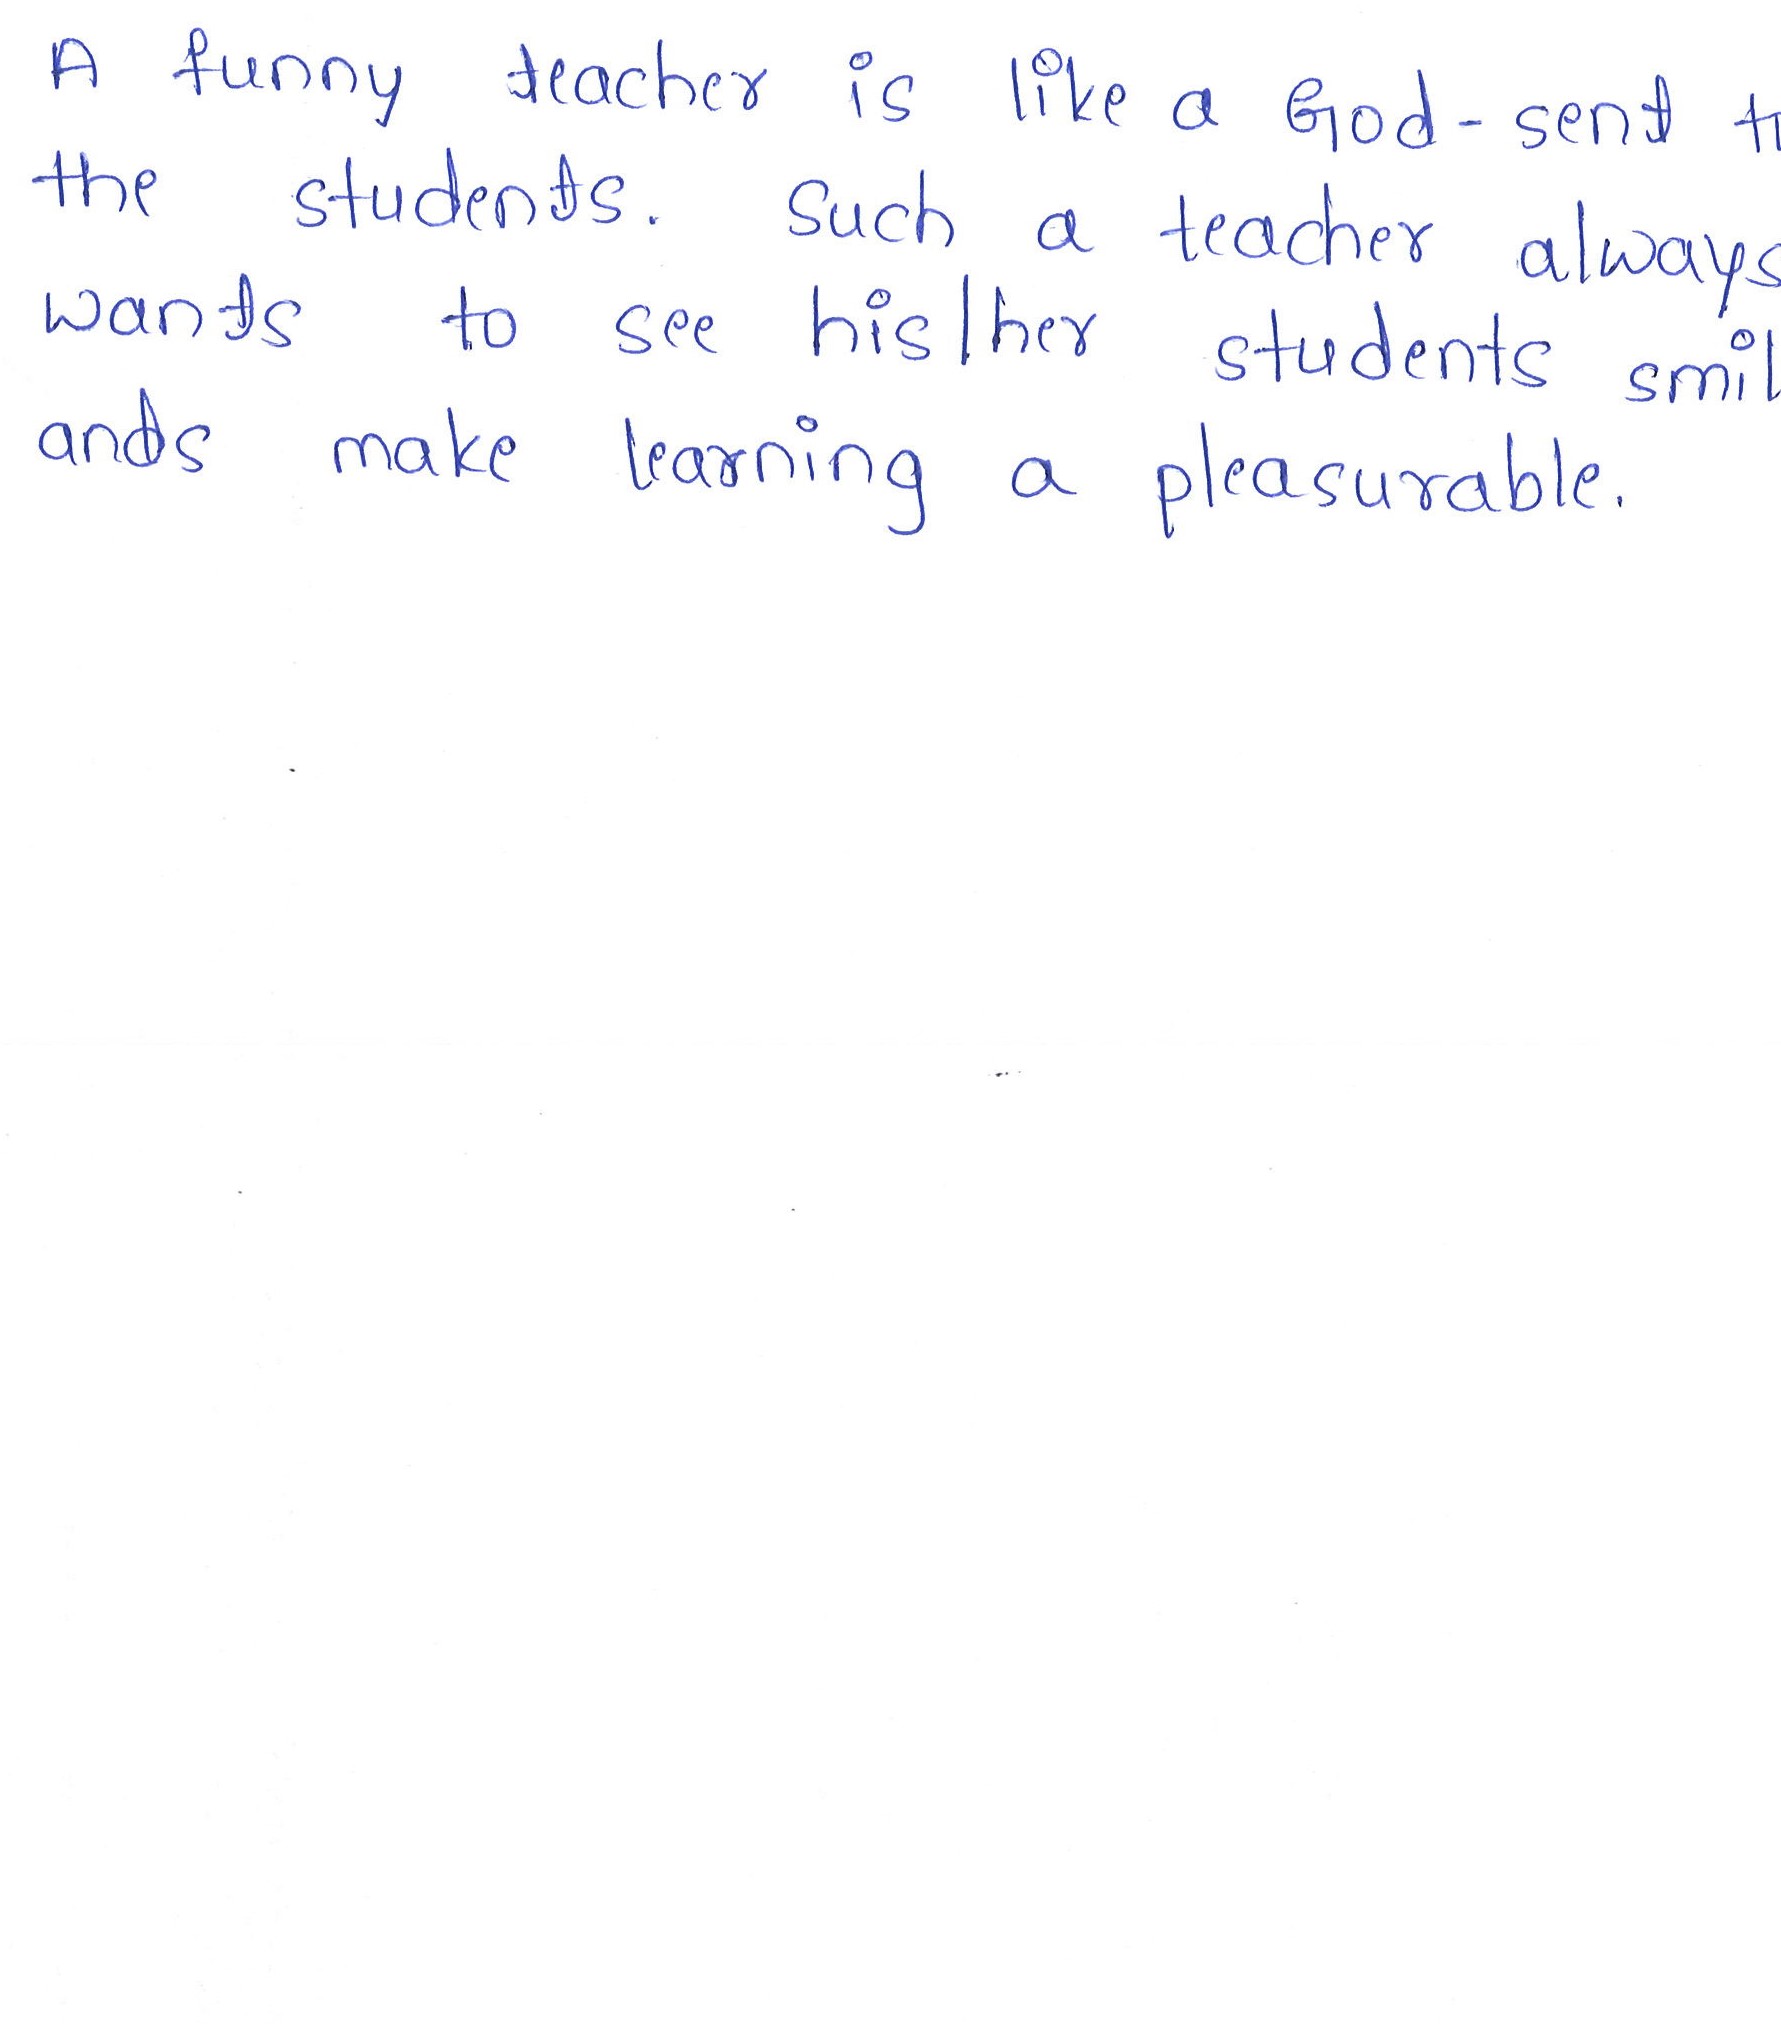 A funny teacher is like a God-sent
the students. Such a teacher always
wants to see his/her students smil
ands make learning a pleasurable.